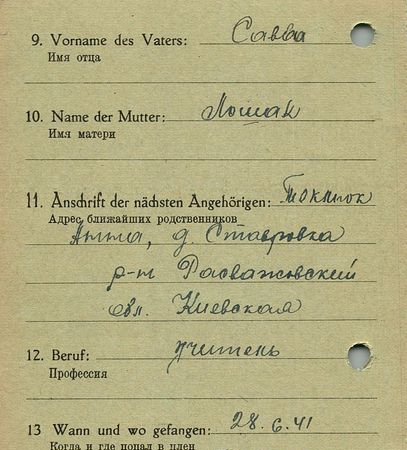 9. Vorname des Vaters: Савва
Имя отца
10. Name der Mutter: Лошак
Имя матери
11. Anschrift der nächsten Angehörigen: Токмок
Адрес ближайших родственников
Анна, д. Ставровка
р-н Розважовский
обл. Киевская
12. Beruf: учитель
Профессия
13 Wann und wo gefangen: 28.6.41
Когда и где попал в плен